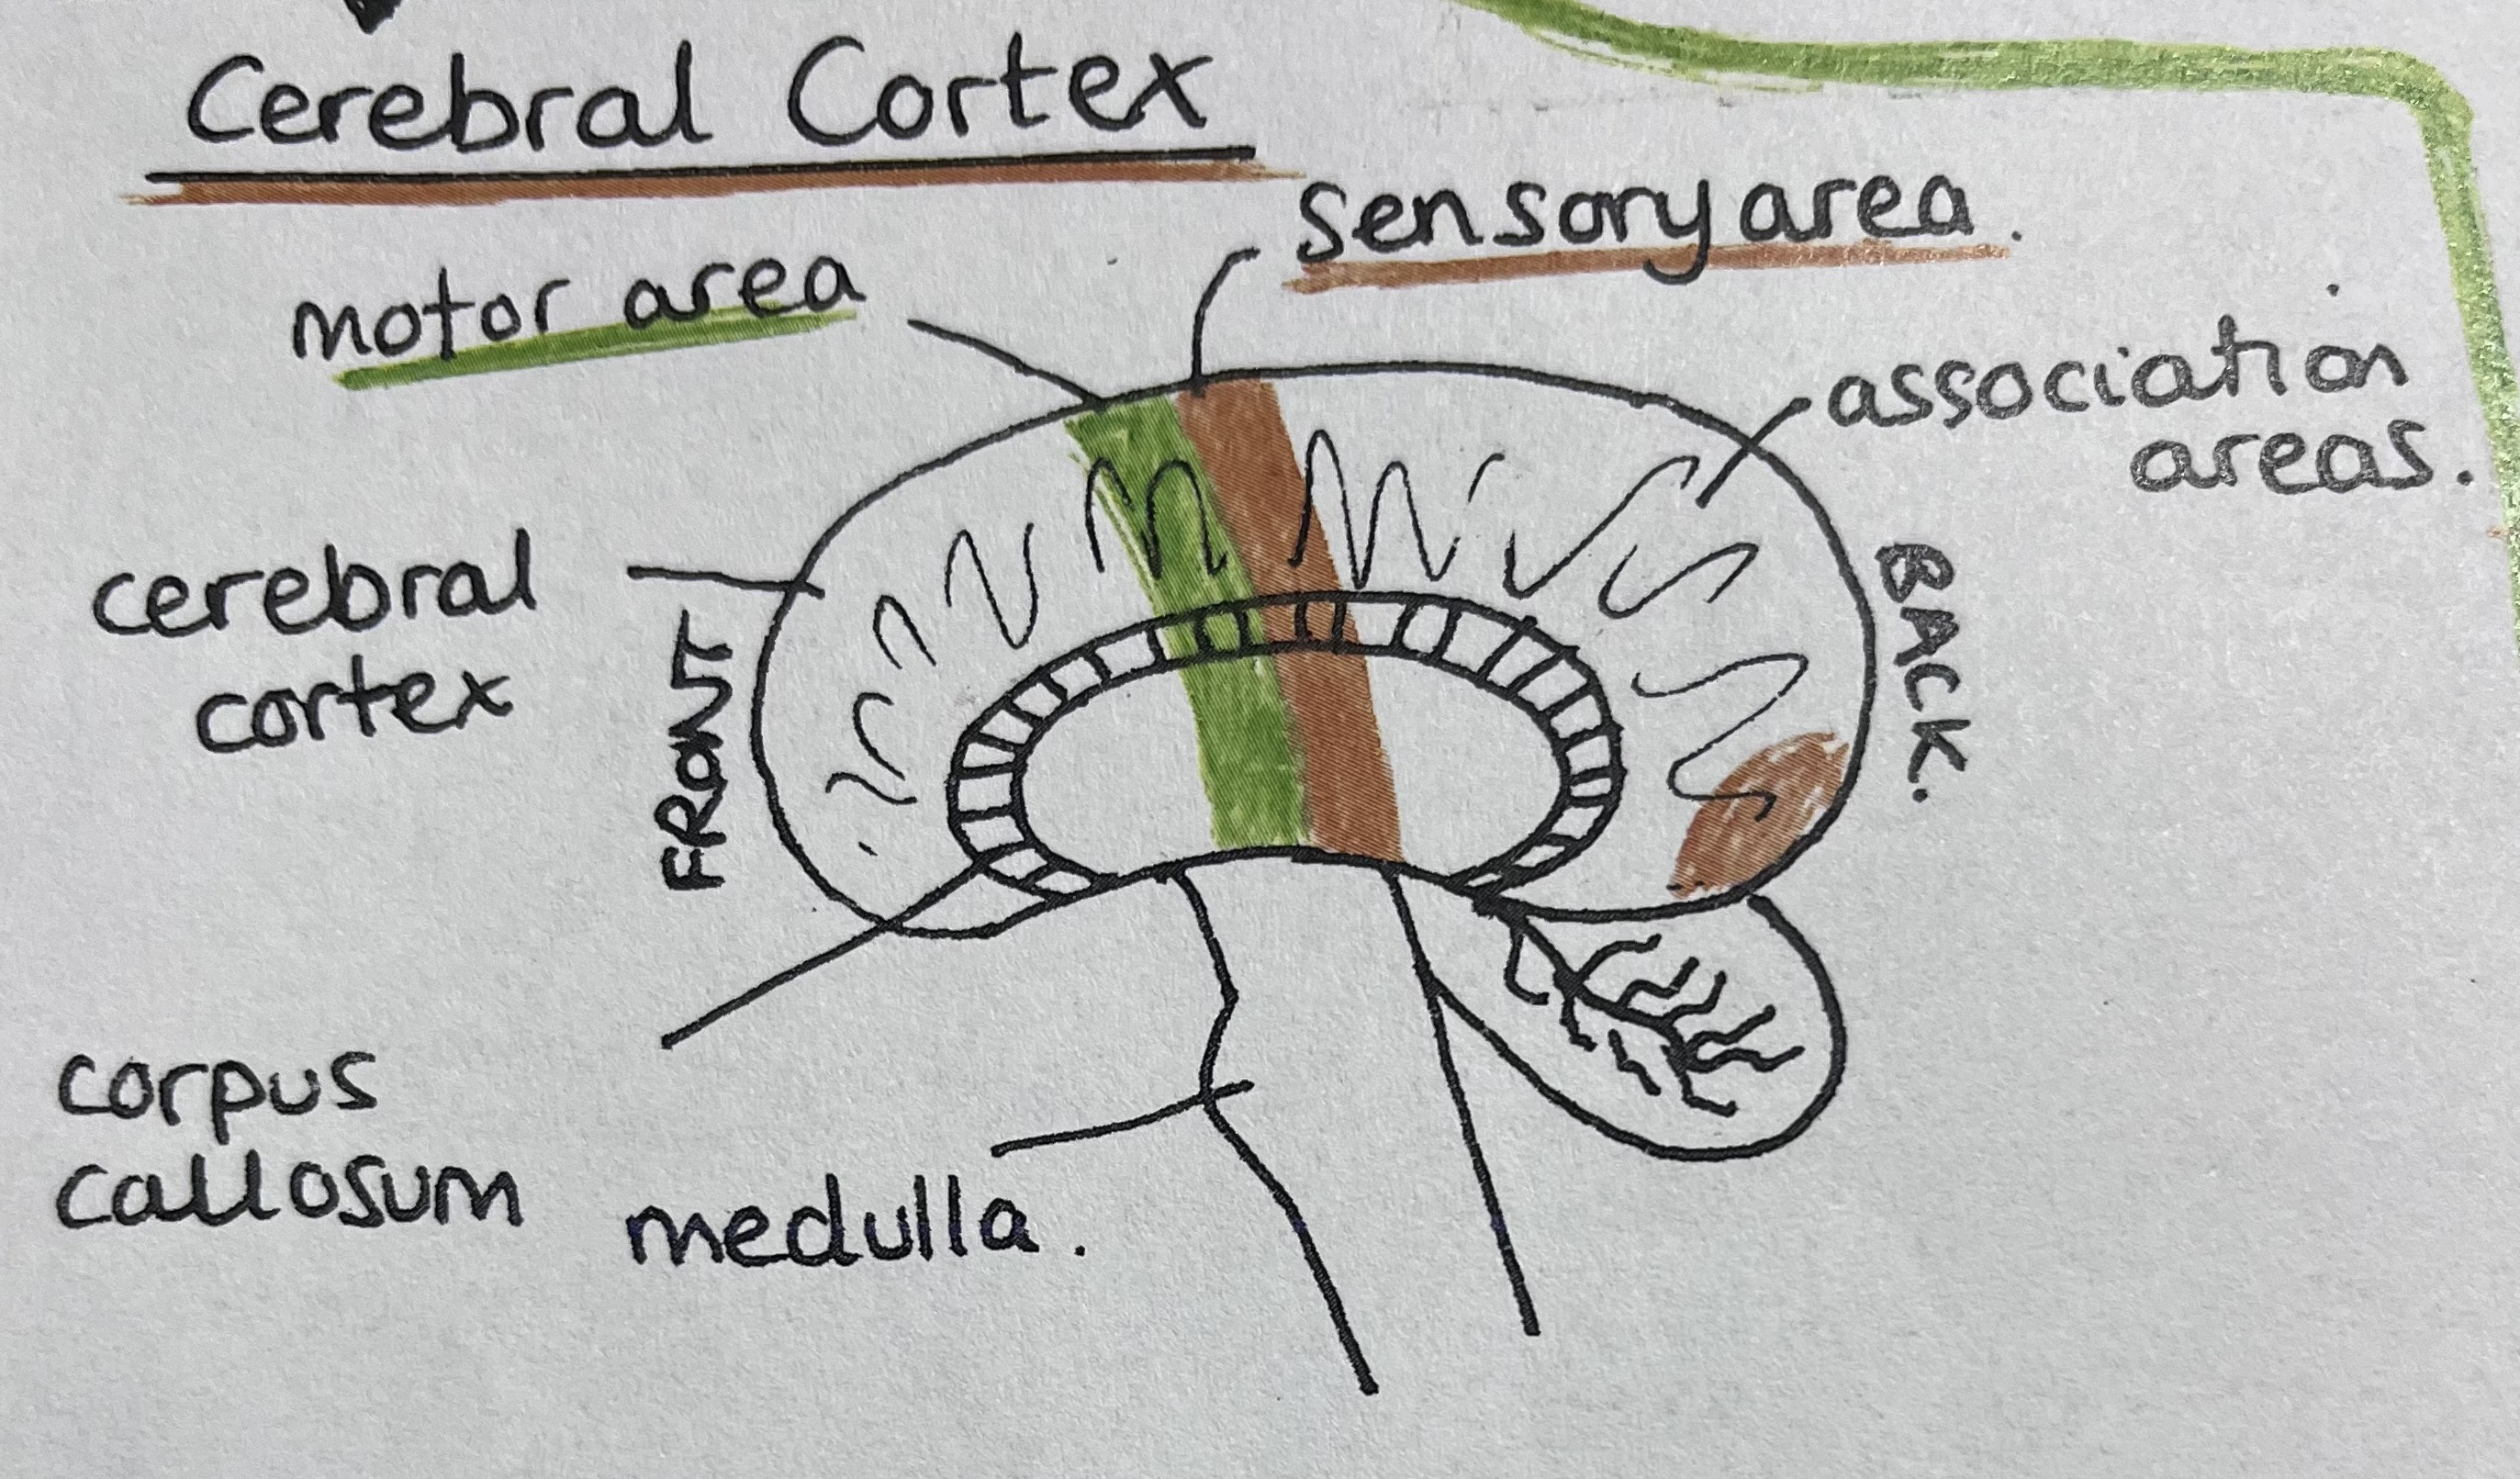 Cerebral Cortex
sensory area.
motor area
association
areas.
cerebral
cortex
FRONT
BACK.
corpus
callosum
medulla.